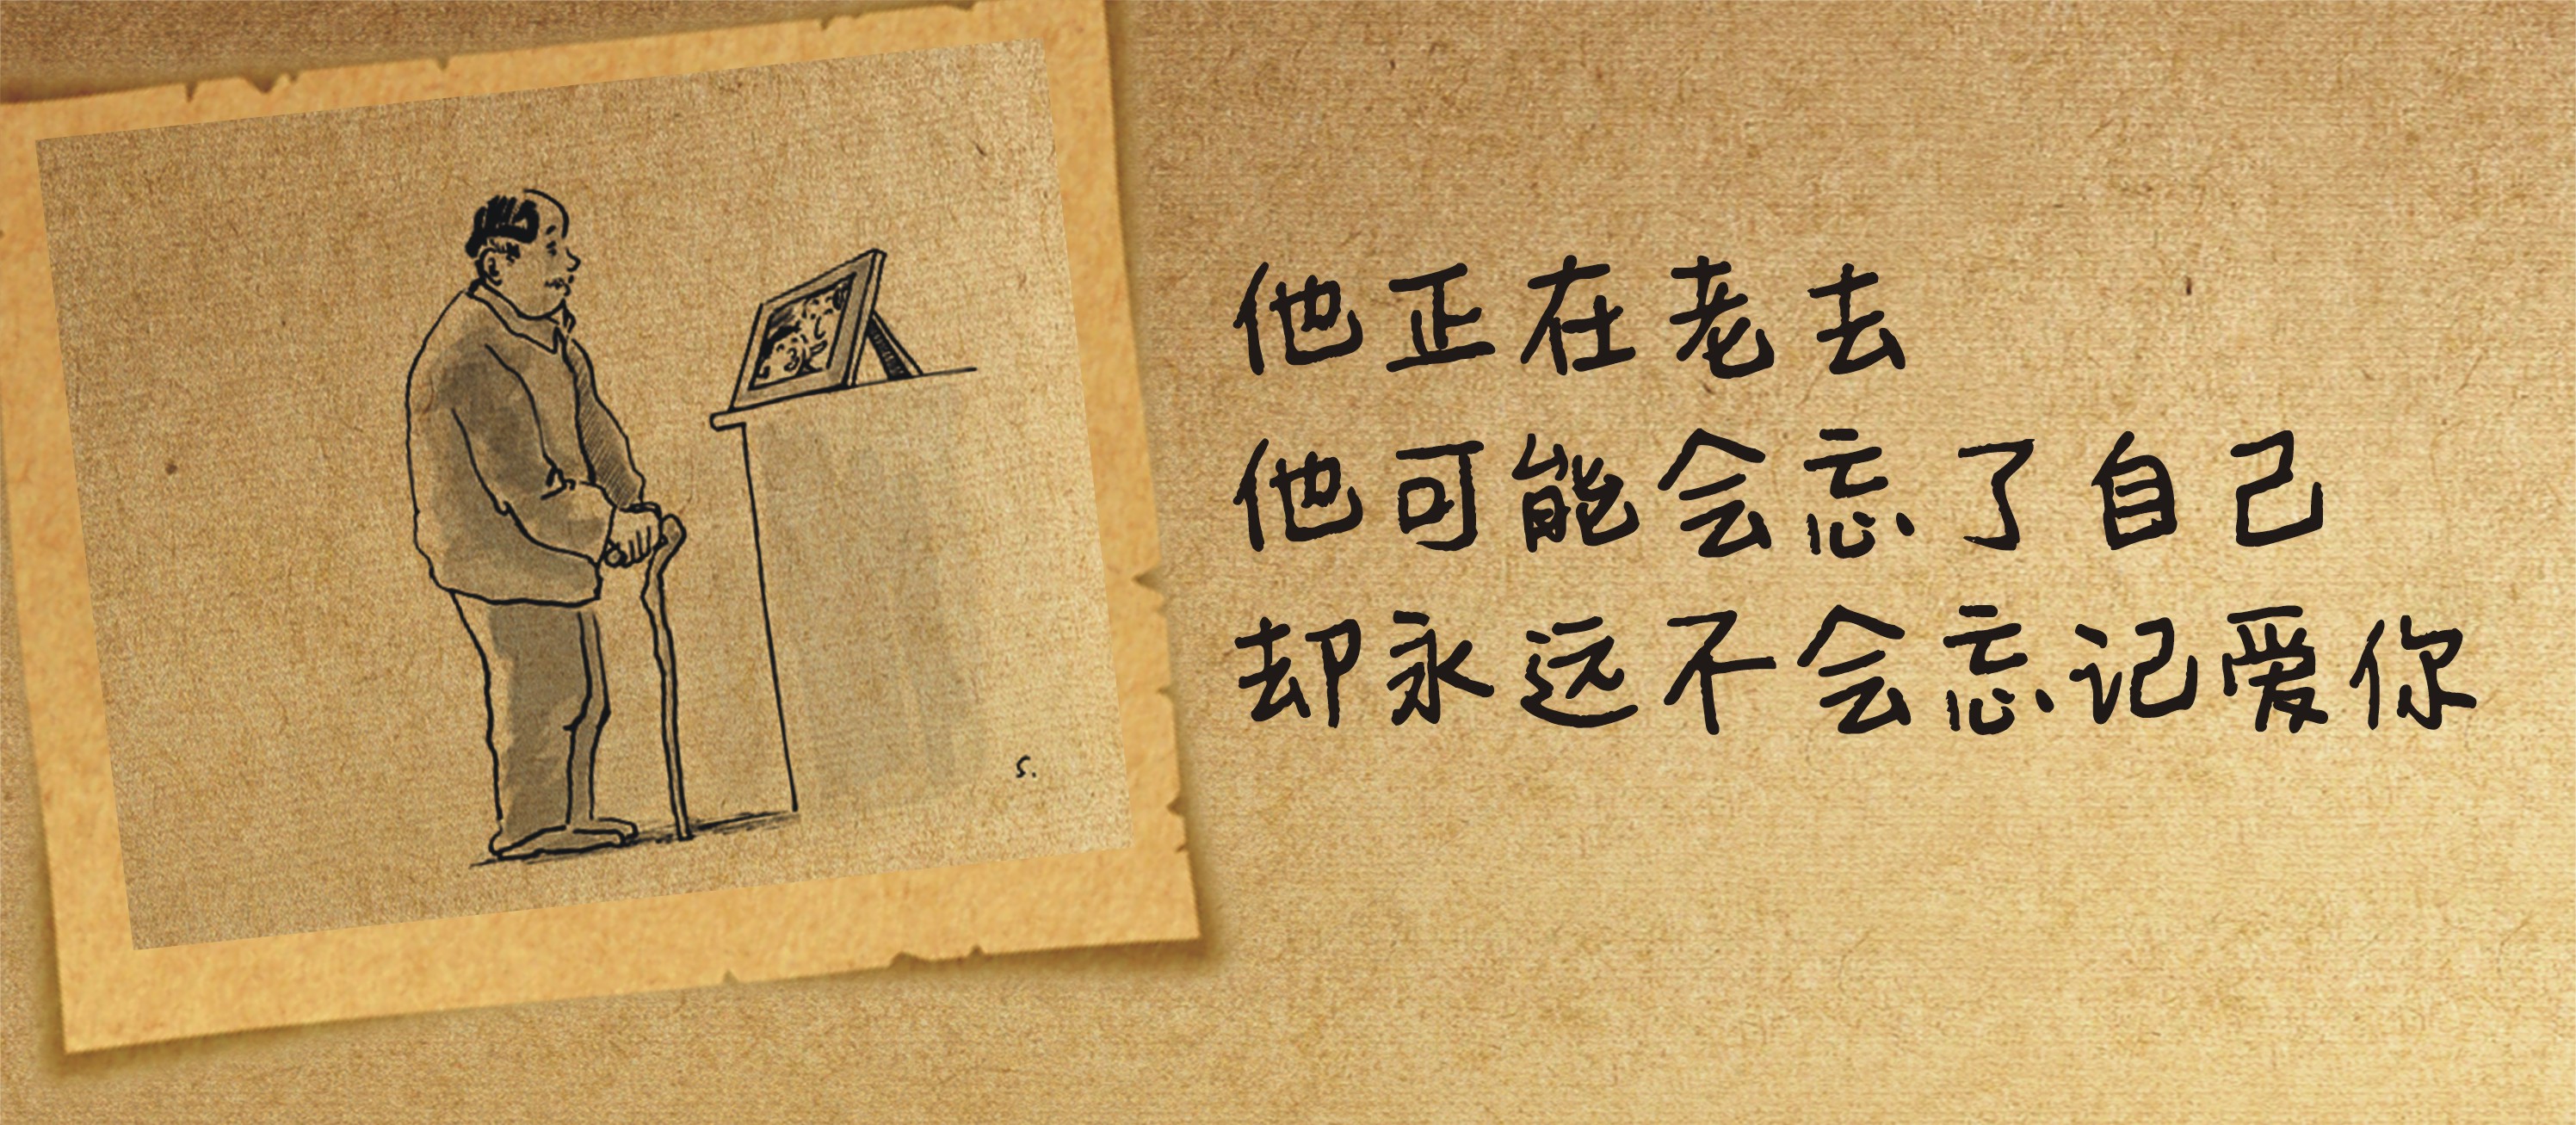 他正在老去
他可能会忘了自己
却永远不会忘记爱你
S.